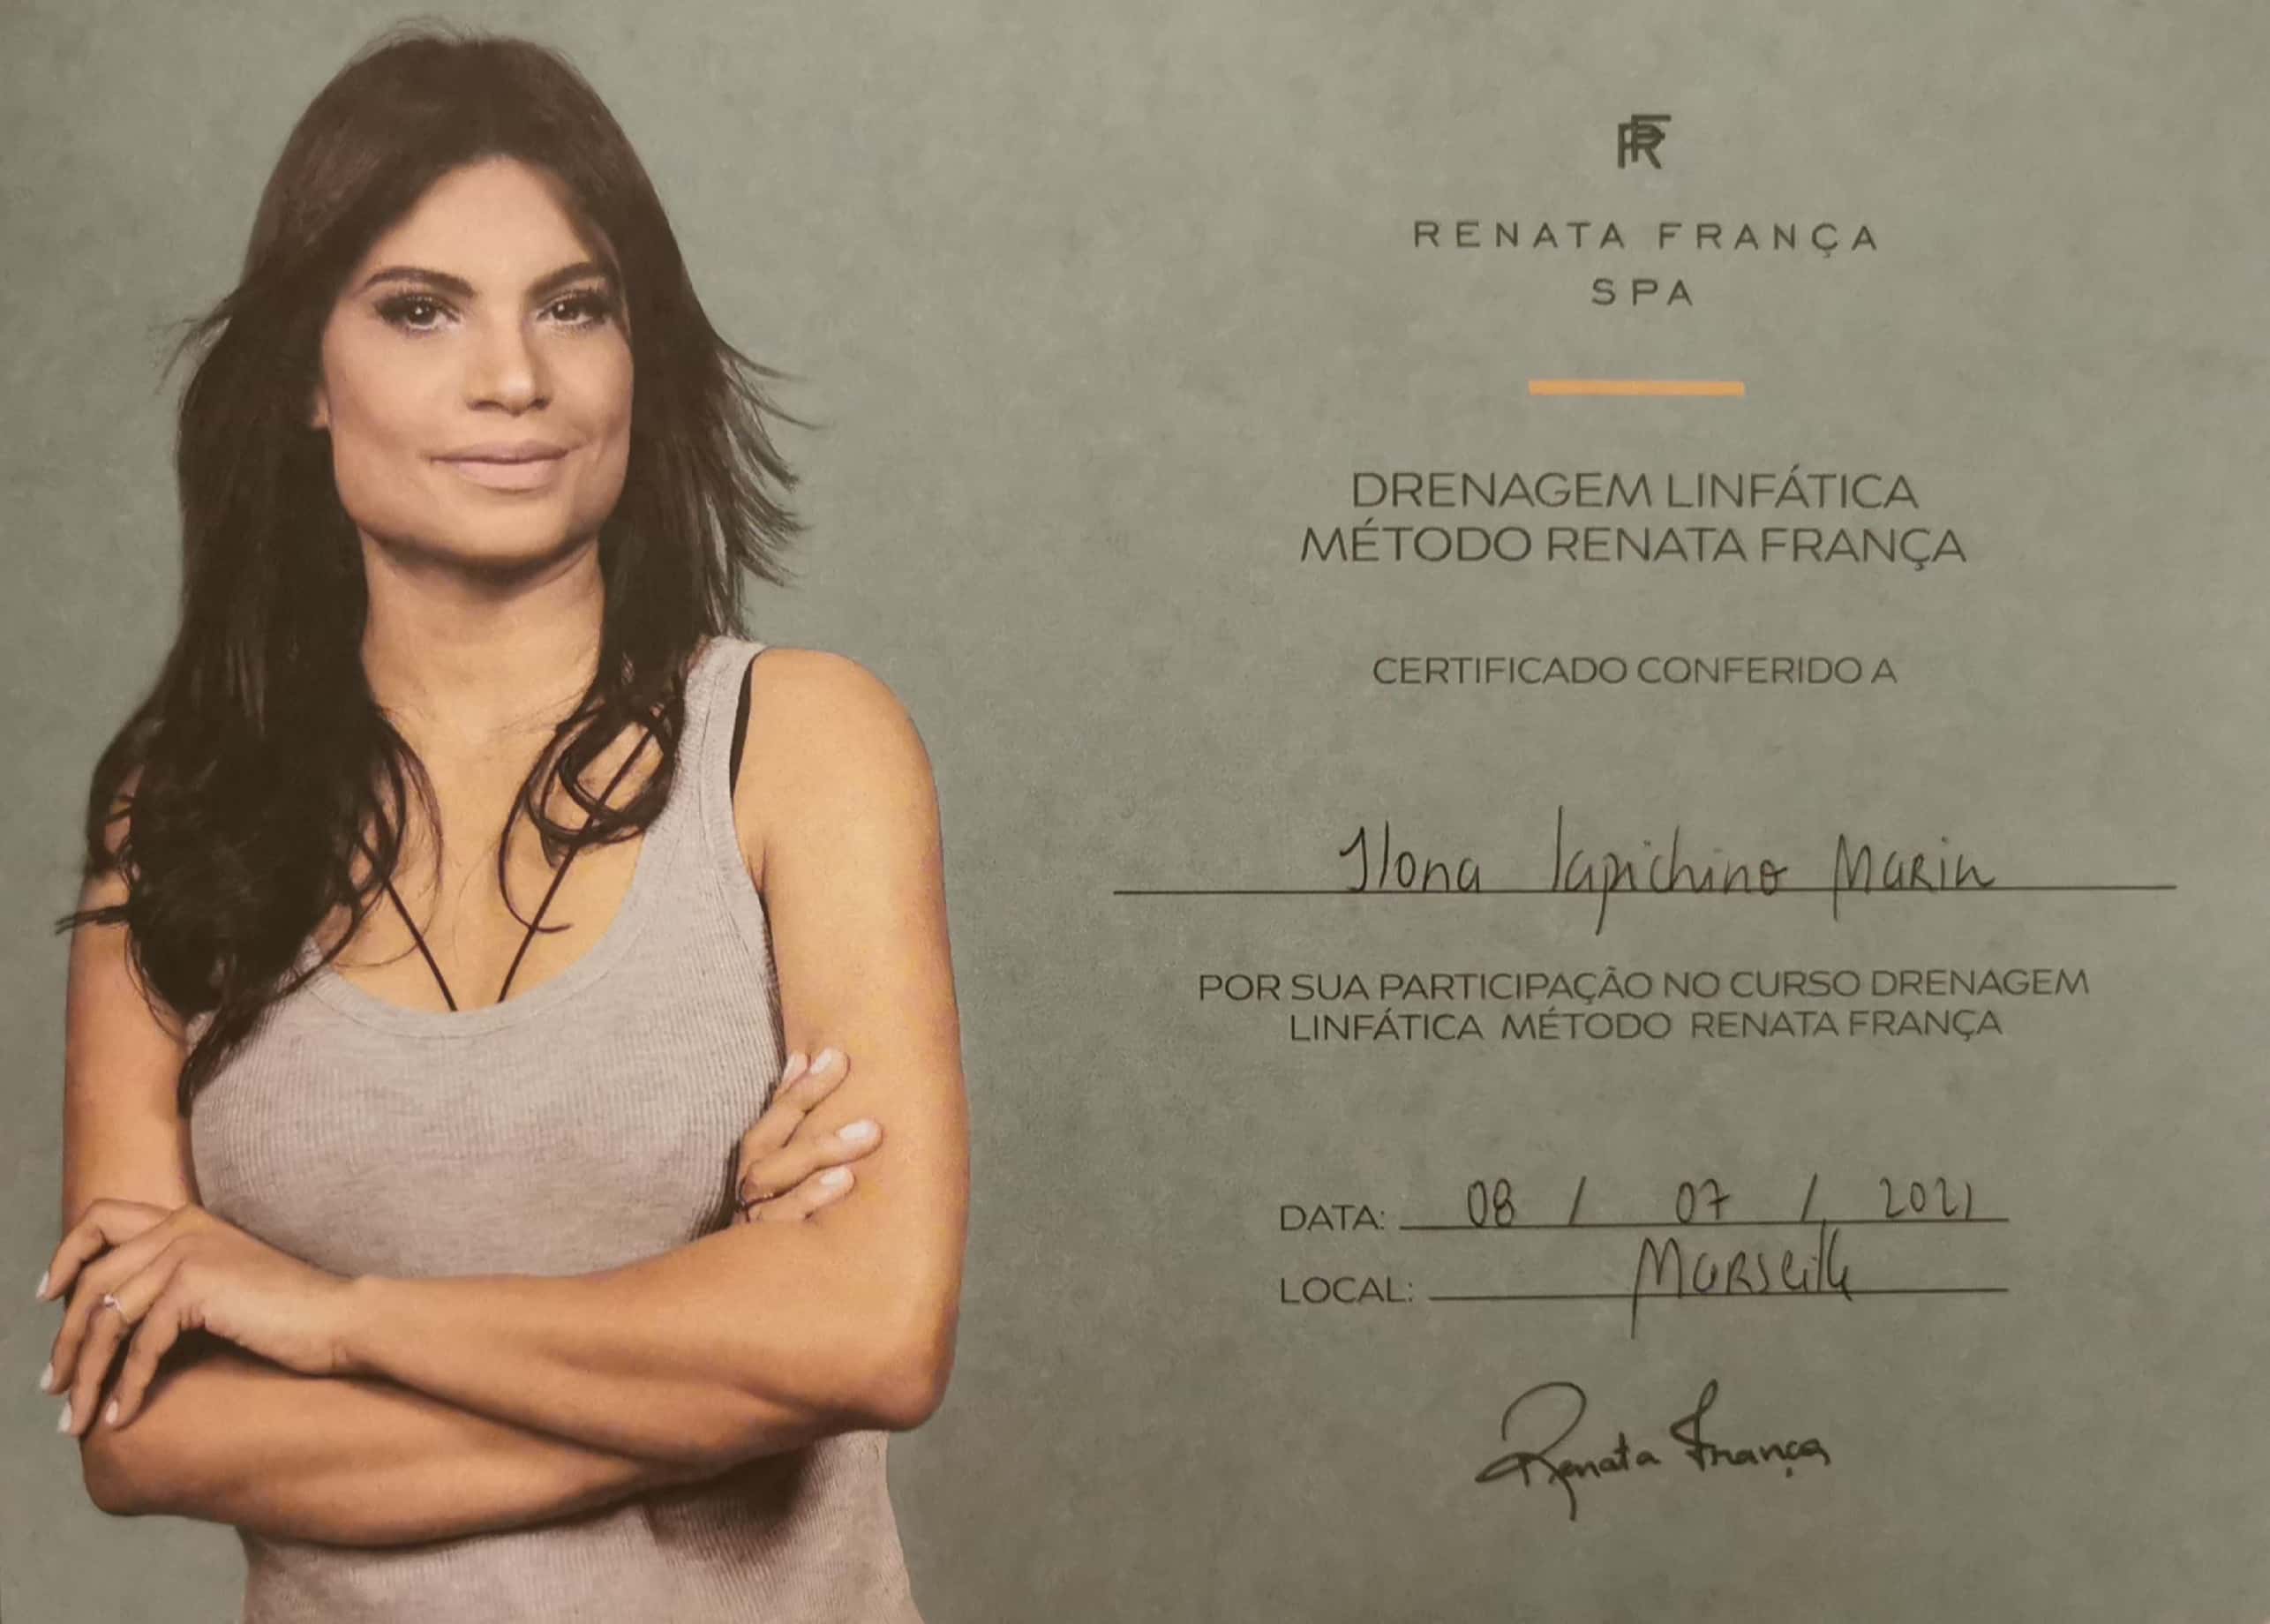 RF
RENATA FRANÇA
SPA
DRENAGEM LINFÁTICA
MÉTODO RENATA FRANÇA
CERTIFICADO CONFERIDO A
Ilona Iapichino Marin
POR SUA PARTICIPAÇÃO NO CURSO DRENAGEM
LINFÁTICA MÉTODO RENATA FRANÇA
DATA: 08 / 07 / 2021
LOCAL: Marseille
Renata França